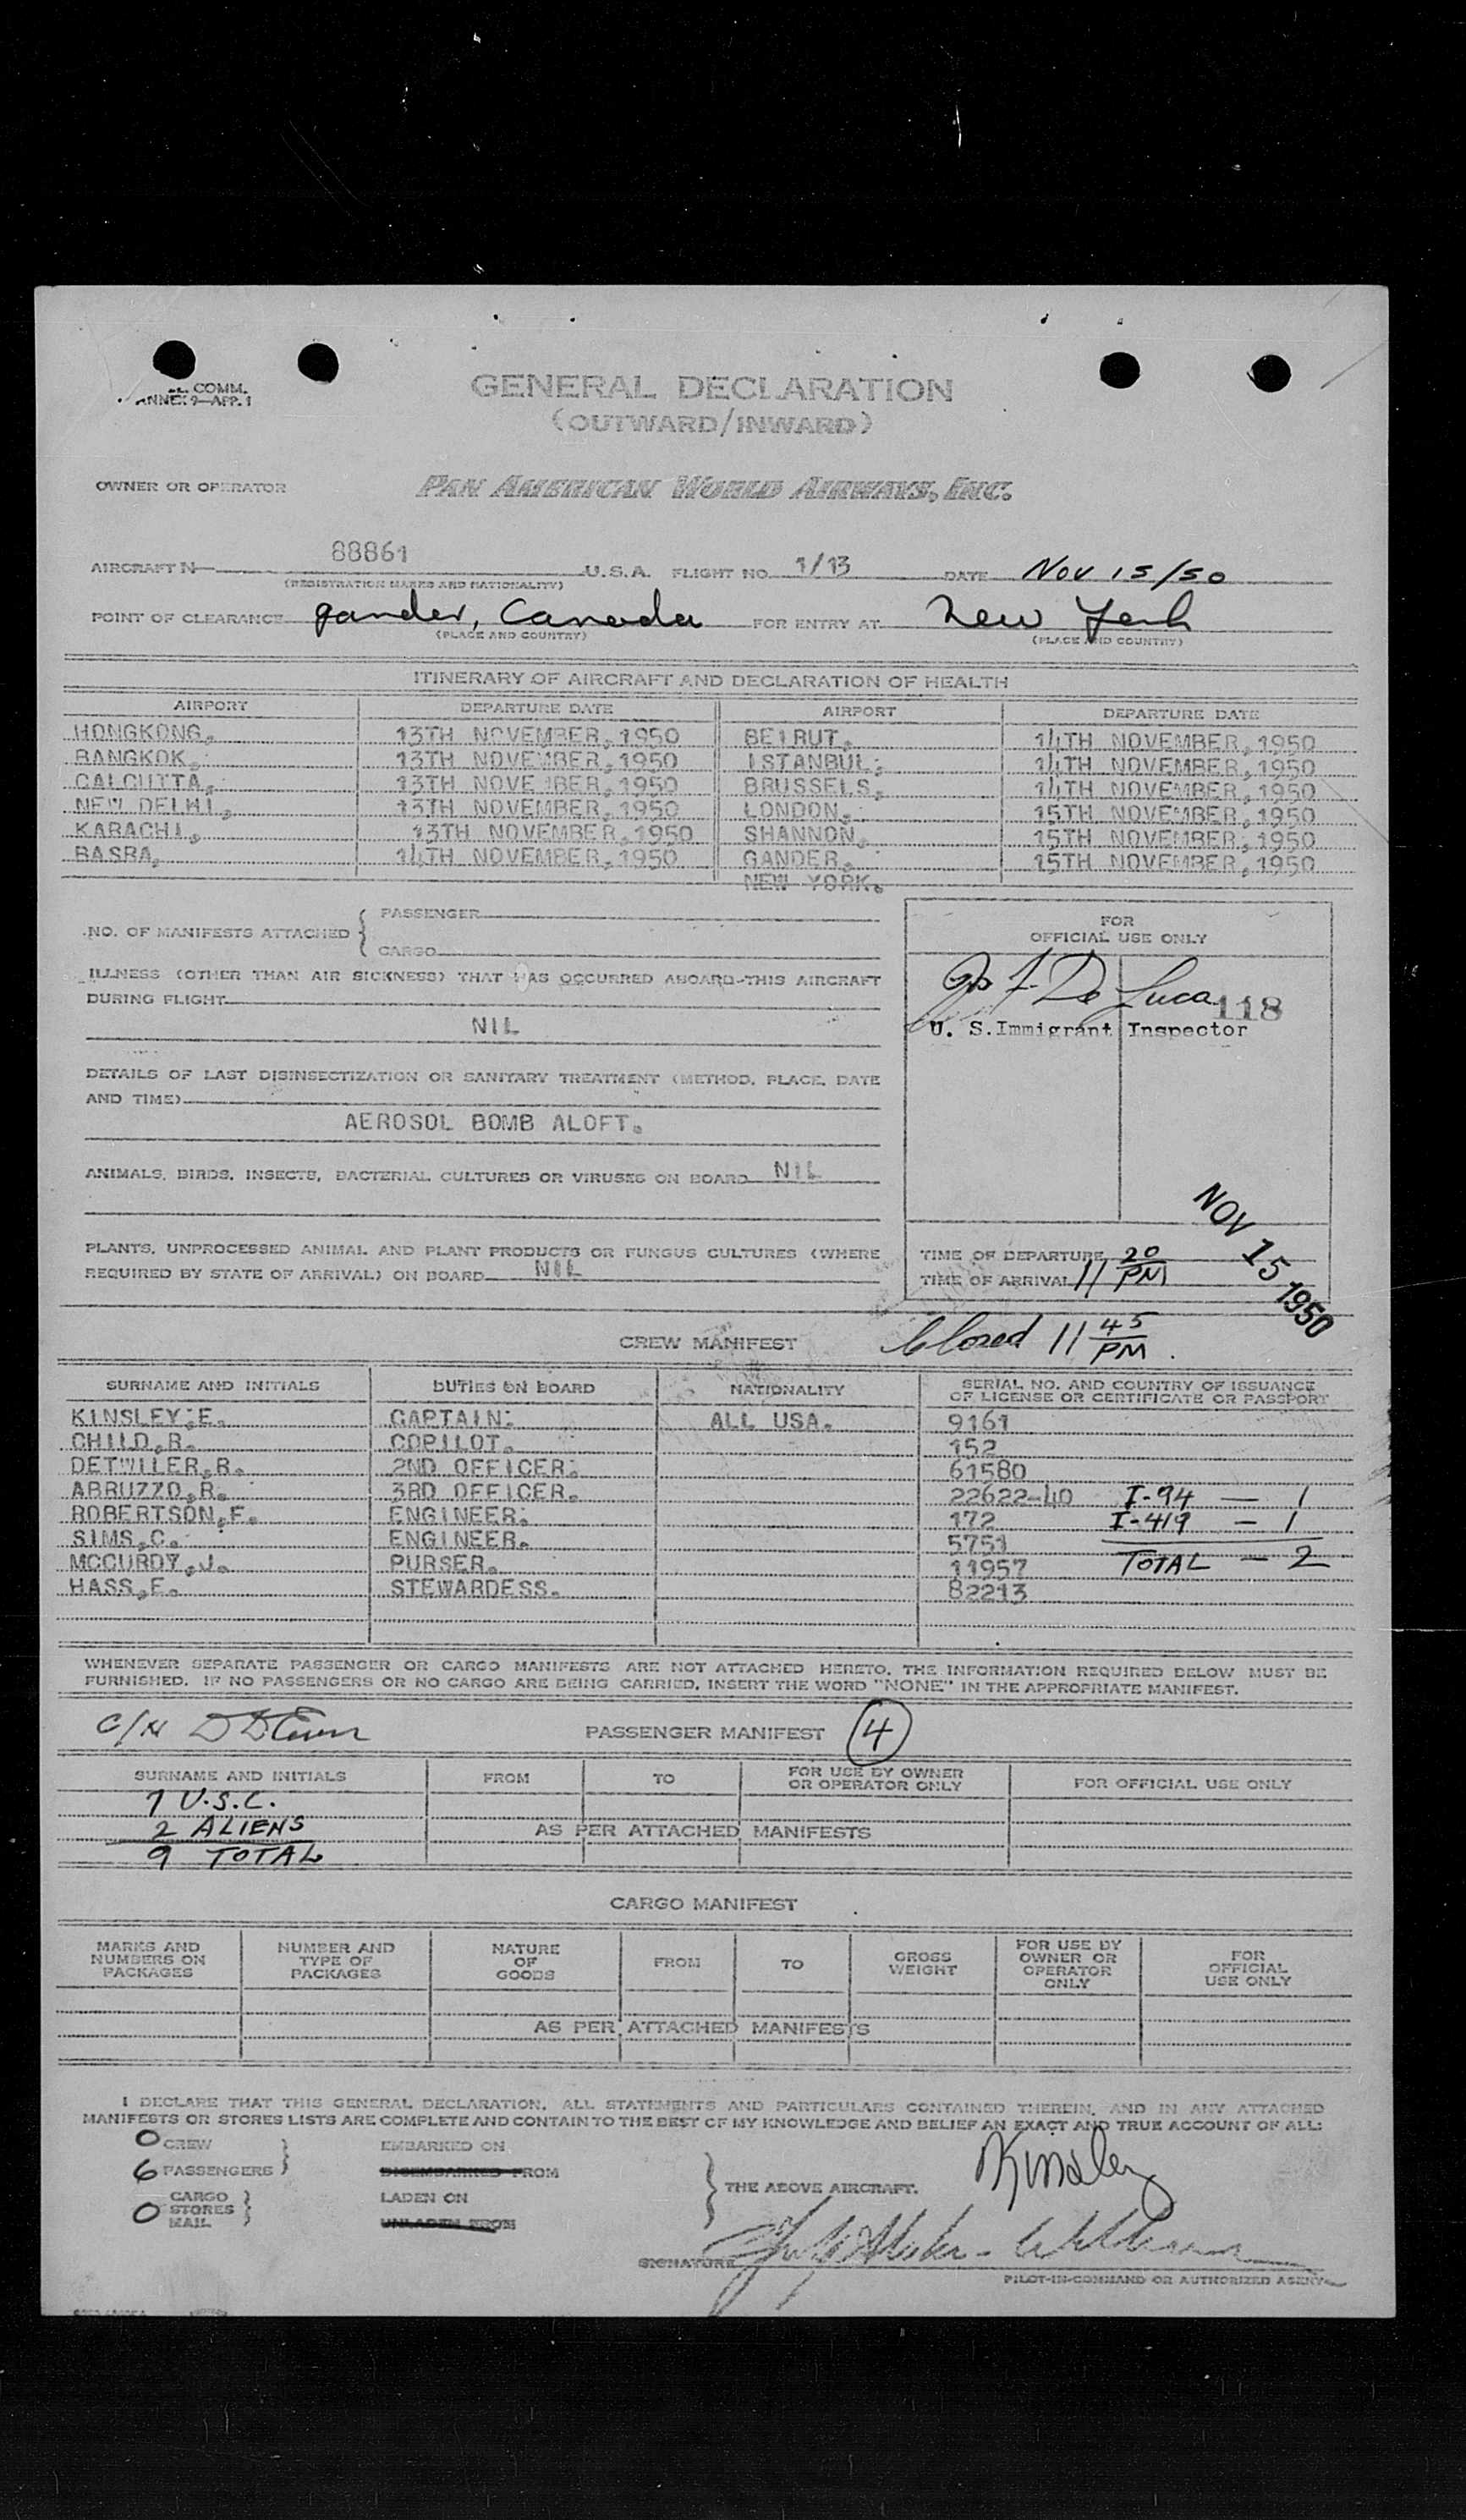 COMM.
ANNEX 9—APP. 1
GENERAL DECLARATION
(OUTWARD/INWARD)
OWNER OR OPERATOR PAN AMERICAN WORLD AIRWAYS, INC.
AIRCRAFT N 88861 U.S.A. FLIGHT NO. 1/13 DATE Nov 15/50
(REGISTRATION MARKS AND NATIONALITY)
POINT OF CLEARANCE gander, Canada FOR ENTRY AT New York
(PLACE AND COUNTRY) (PLACE AND COUNTRY)
ITINERARY OF AIRCRAFT AND DECLARATION OF HEALTH
AIRPORT DEPARTURE DATE AIRPORT DEPARTURE DATE
HONGKONG, 13TH NOVEMBER, 1950 BEIRUT, 14TH NOVEMBER, 1950
BANGKOK, 13TH NOVEMBER, 1950 ISTANBUL, 14TH NOVEMBER, 1950
CALCUTTA, 13TH NOVEMBER, 1950 BRUSSELS, 14TH NOVEMBER, 1950
NEW DELHI, 13TH NOVEMBER, 1950 LONDON, 15TH NOVEMBER, 1950
KARACHI, 13TH NOVEMBER, 1950 SHANNON, 15TH NOVEMBER, 1950
BASRA, 14TH NOVEMBER, 1950 GANDER, 15TH NOVEMBER, 1950
NEW YORK.
NO. OF MANIFESTS ATTACHED { PASSENGER
CARGO
FOR
OFFICIAL USE ONLY
ILLNESS (OTHER THAN AIR SICKNESS) THAT HAS OCCURRED ABOARD THIS AIRCRAFT
DURING FLIGHT
NIL
De Luca 118
U. S. Immigrant Inspector
DETAILS OF LAST DISINSECTIZATION OR SANITARY TREATMENT (METHOD, PLACE, DATE
AND TIME)
AEROSOL BOMB ALOFT.
ANIMALS, BIRDS, INSECTS, BACTERIAL CULTURES OR VIRUSES ON BOARD NIL
PLANTS, UNPROCESSED ANIMAL AND PLANT PRODUCTS OR FUNGUS CULTURES (WHERE
REQUIRED BY STATE OF ARRIVAL) ON BOARD NIL
TIME OF DEPARTURE
TIME OF ARRIVAL 11 20 PM
NOV 15 1950
CREW MANIFEST Closed 11 45 PM.
SURNAME AND INITIALS DUTIES ON BOARD NATIONALITY SERIAL NO. AND COUNTRY OF ISSUANCE
OF LICENSE OR CERTIFICATE OR PASSPORT
KINSLEY, E. CAPTAIN. ALL USA. 9161
CHILD, R. COPILOT. 152
DETWILER, R. 2ND OFFICER. 61580
ABRUZZO, R. 3RD OFFICER. 22622-40 I-94 — 1
ROBERTSON, F. ENGINEER. 172 I-419 — 1
SIMS, C. ENGINEER. 5751
MCCURDY, J. PURSER. 11957 TOTAL — 2
HASS, E. STEWARDESS. 82213
WHENEVER SEPARATE PASSENGER OR CARGO MANIFESTS ARE NOT ATTACHED HERETO, THE INFORMATION REQUIRED BELOW MUST BE
FURNISHED. IF NO PASSENGERS OR NO CARGO ARE BEING CARRIED, INSERT THE WORD "NONE" IN THE APPROPRIATE MANIFEST.
PASSENGER MANIFEST 4
SURNAME AND INITIALS FROM TO FOR USE BY OWNER
OR OPERATOR ONLY FOR OFFICIAL USE ONLY
7 U.S.C.
2 ALIENS AS PER ATTACHED MANIFESTS
9 TOTAL
CARGO MANIFEST
MARKS AND
NUMBERS ON
PACKAGES
NUMBER AND
TYPE OF
PACKAGES
NATURE
OF
GOODS
FROM
TO
GROSS
WEIGHT
FOR USE BY
OWNER OR
OPERATOR
ONLY
FOR
OFFICIAL
USE ONLY
AS PER ATTACHED MANIFESTS
I DECLARE THAT THIS GENERAL DECLARATION, ALL STATEMENTS AND PARTICULARS CONTAINED THEREIN, AND IN ANY ATTACHED
MANIFESTS OR STORES LISTS ARE COMPLETE AND CONTAIN TO THE BEST OF MY KNOWLEDGE AND BELIEF AN EXACT AND TRUE ACCOUNT OF ALL:
0 CREW EMBARKED ON
6 PASSENGERS DISEMBARKED FROM
THE ABOVE AIRCRAFT. Kinsley
CARGO LADEN ON
0 STORES
MAIL UNLADEN FROM
SIGNATURE
PILOT-IN-COMMAND OR AUTHORIZED AGENT